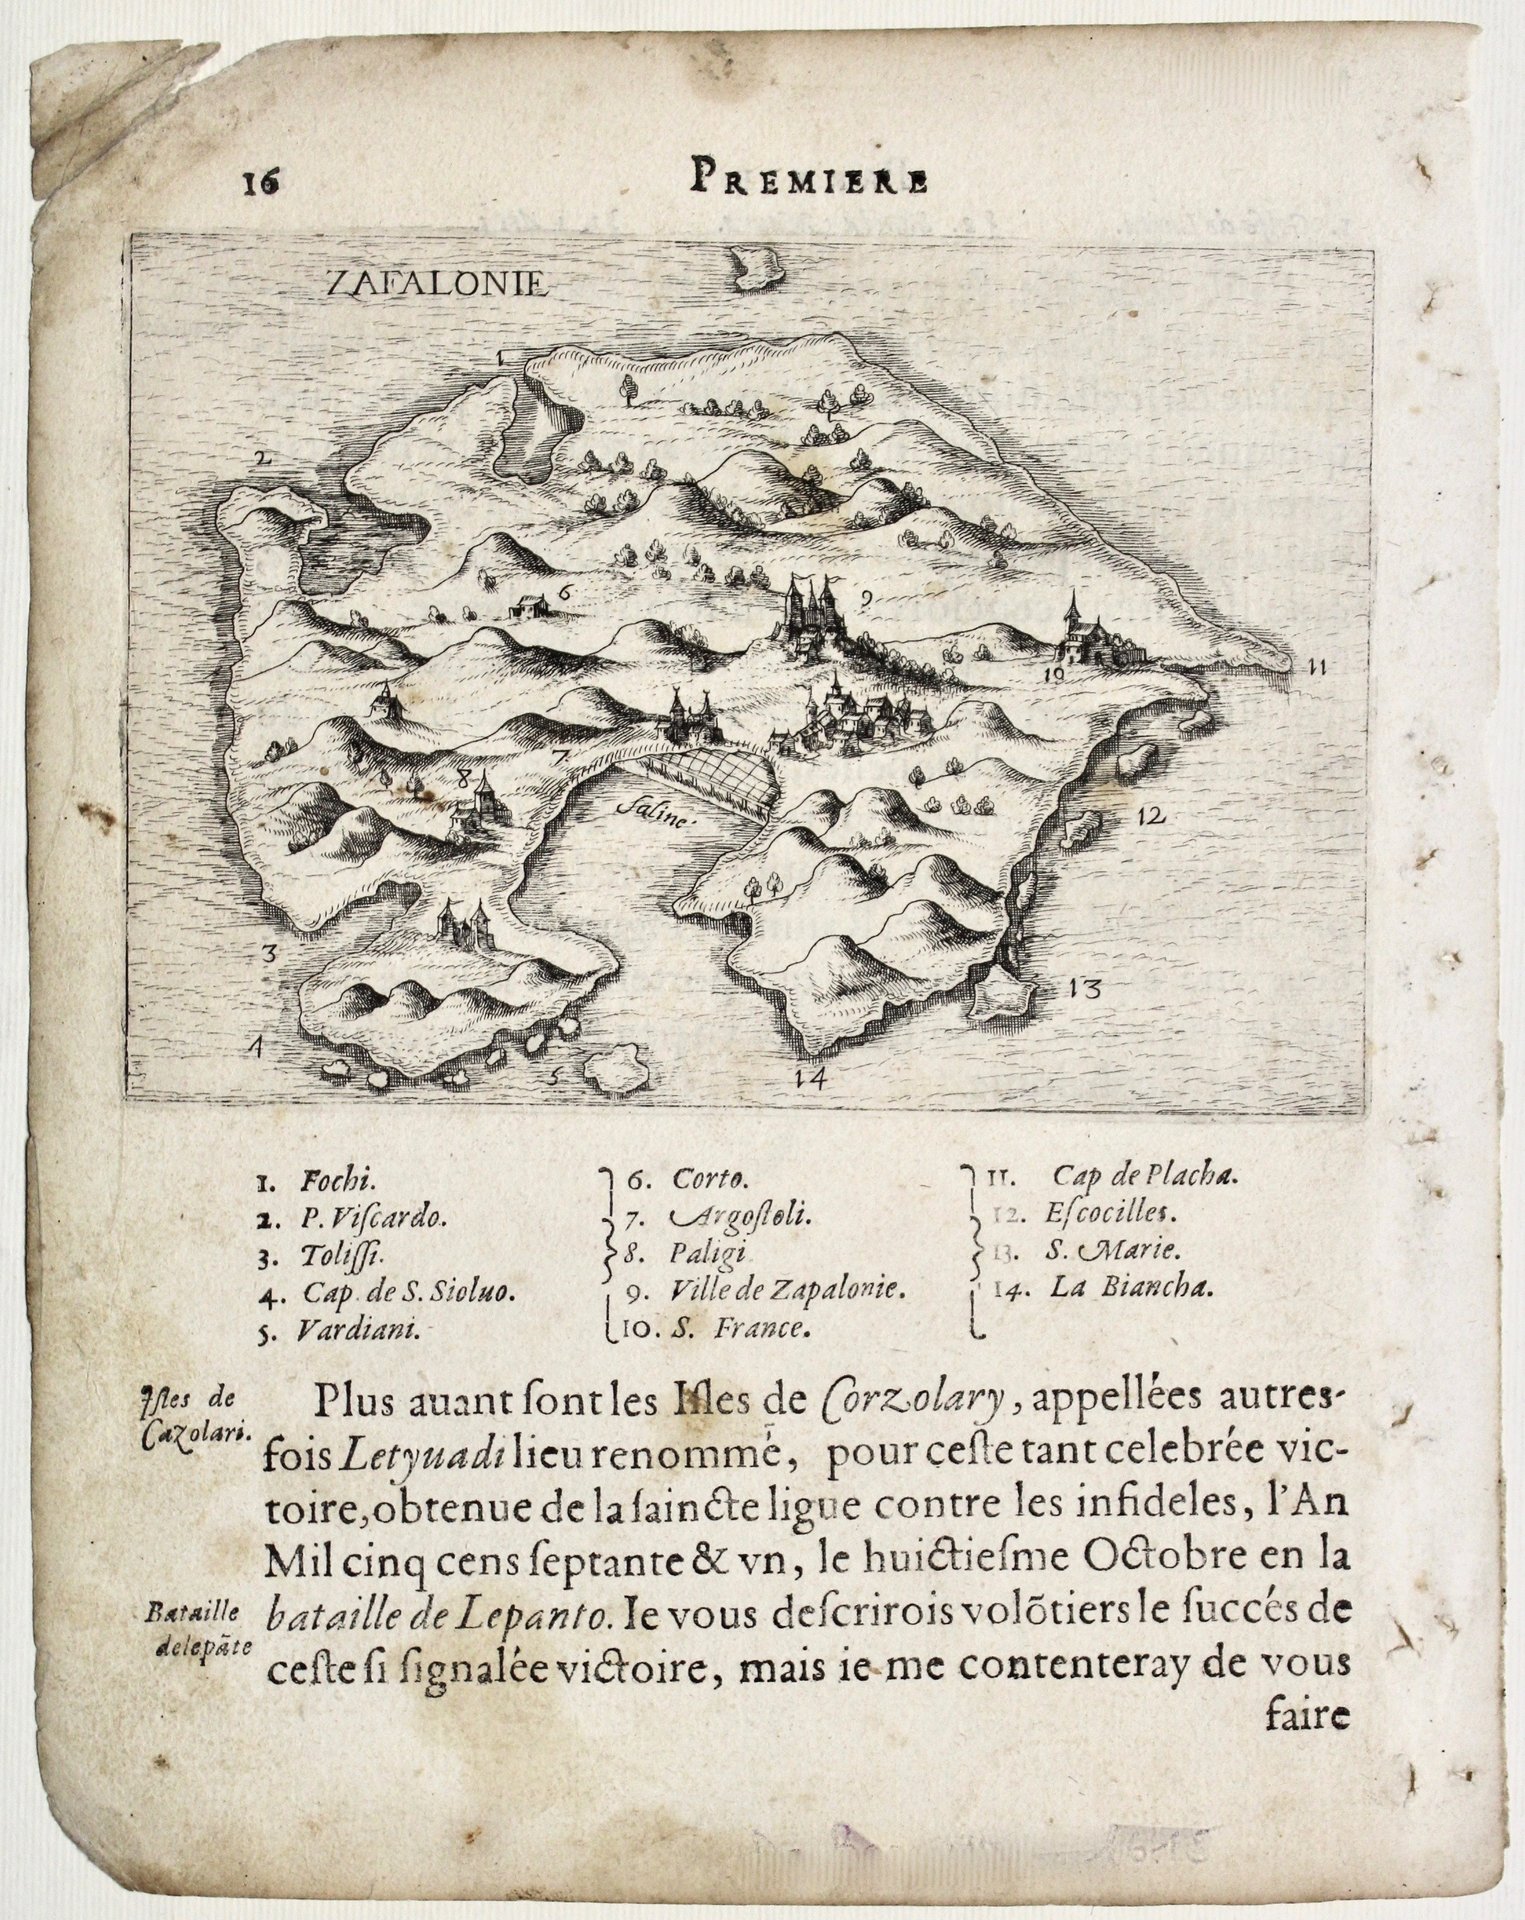 16
PREMIERE
ZAFALONIE
1
2
6
9
11
10
7.
8
Saline.
12
3
13
4
5
14
1. Fochi.
2. P. Viſcardo.
3. Toliſſi.
4. Cap. de S. Sioluo.
5. Vardiani.
6. Corto.
7. Argoſtoli.
8. Paligi
9. Ville de Zapalonie.
10. S. France.
11. Cap de Placha.
12. Eſcocilles.
13. S. Marie.
14. La Biancha.
Iſles de
Cazolari.
Plus auant ſont les Iſles de Corzolary, appellées autres-
fois Letyuadi lieu renommé, pour ceſte tant celebrée vic-
toire, obtenue de la ſaincte ligue contre les infideles, l'An
Mil cinq cens ſeptante & vn, le huictieſme Octobre en la
Bataille
delepãte
bataille de Lepanto. Ie vous deſcrirois volõtiers le ſuccés de
ceſte ſi ſignalée victoire, mais ie me contenteray de vous
faire